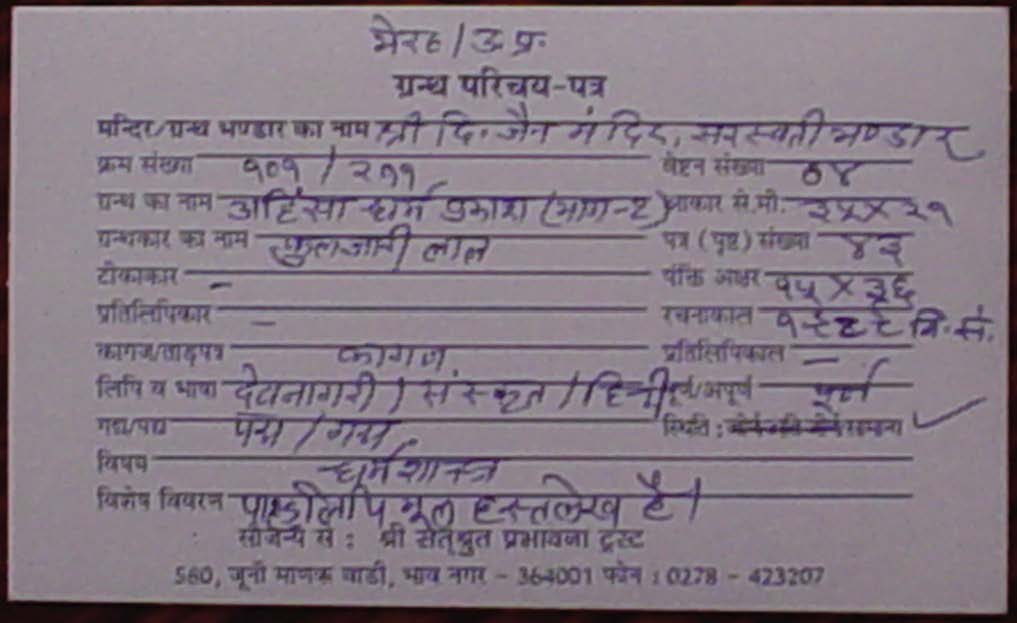 मेरठ / उ. प्र.
ग्रन्थ परिचय-पत्र
मन्दिर/ग्रन्थ भण्डार का नाम श्री दि. जैन मंदिर, सरस्वती भण्डार
क्रम संख्या १०१ / २११ वेष्टन संख्या ०४
ग्रन्थ का नाम अहिंसा धर्म प्रकाश (भाग-२) आकार से.मी. ३५ X २१
ग्रन्थकार का नाम फुलजारी लाल पत्र (पृष्ठ) संख्या ४३
टीकाकार - पंक्ति अक्षर १५ X ३६
प्रतिलिपिकार - रचनाकाल वि. सं.
कागज/ताड़पत्र कागज प्रतिलिपिकाल -
लिपि व भाषा देवनागरी / संस्कृत / हिन्दी पूर्ण/अपूर्ण पूर्ण
गद्य/पद्य पद्य / गद्य स्थिति : सामान्य ✓
विषय धर्मशास्त्र
विशेष विवरन पाण्डुलिपि मूल हस्तलेख है।
सौजन्य से : श्री सत्श्रुत प्रभावना ट्रस्ट
580, जूनी माणक वाडी, भाव नगर - 364001 फोन : 0278 - 423207